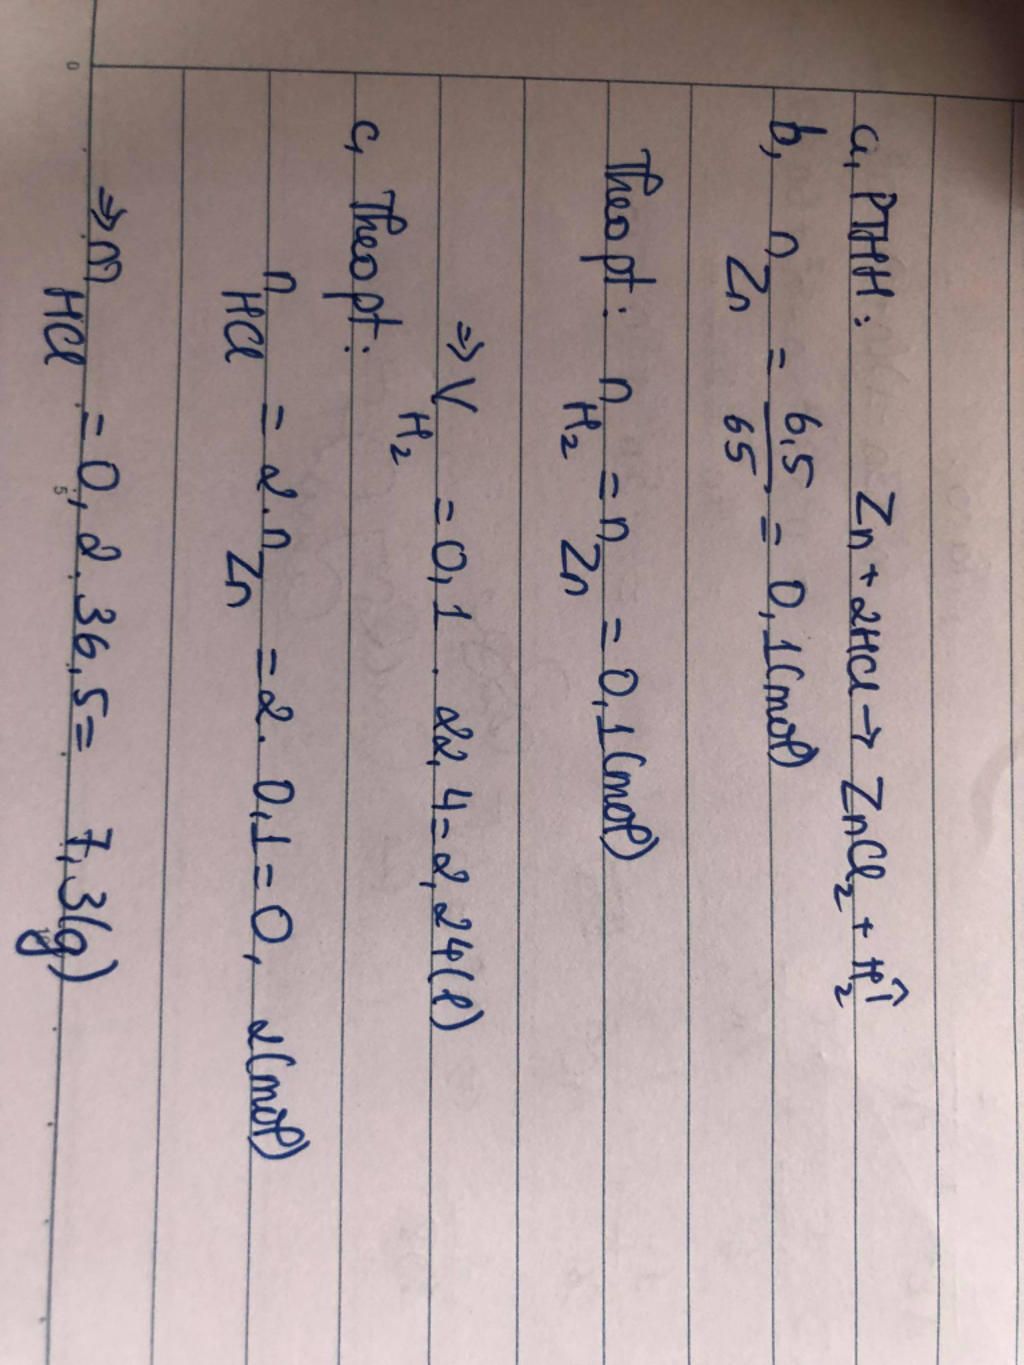 a, PTHH: Zn + 2HCl → ZnCl₂ + H₂↑
b, n Zn = 6,5/65 = 0,1(mol)
Theo pt: n H₂ = n Zn = 0,1(mol)
⇒ V H₂ = 0,1 . 22,4 = 2,24(l)
c, Theo pt:
n HCl = 2.n Zn = 2. 0,1 = 0, 2(mol)
⇒ m HCl = 0,2.36,5 = 7,3(g)